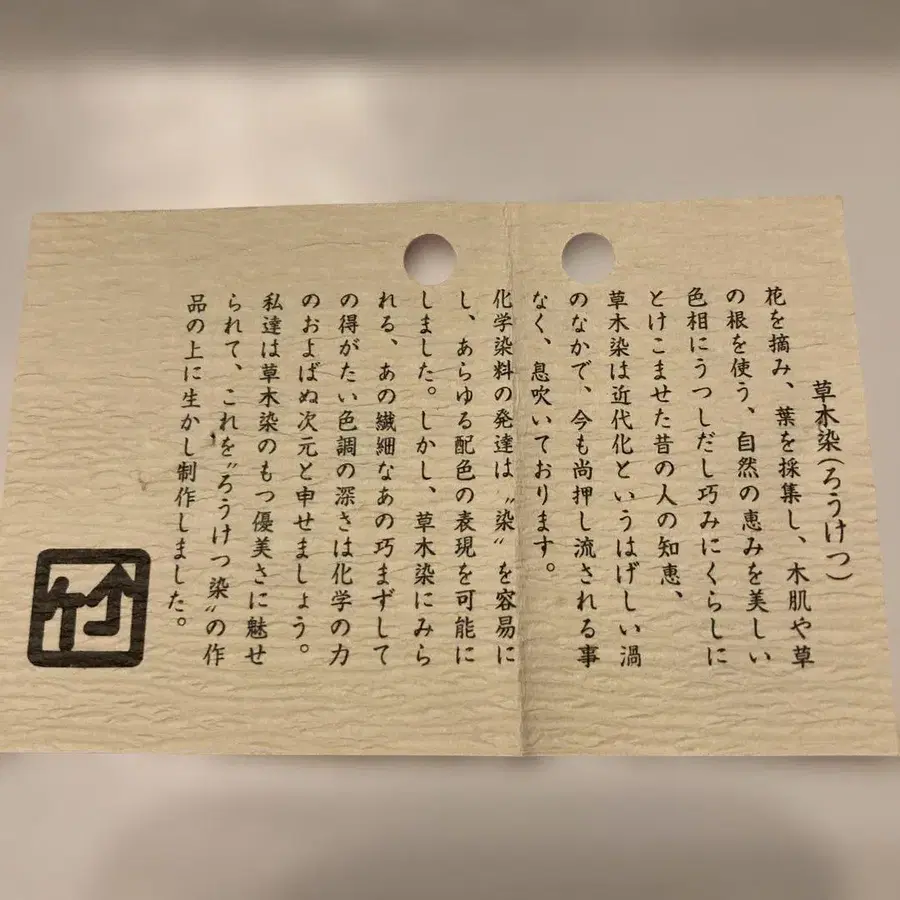 草木染(ろうけつ)
花を摘み、葉を採集し、木肌や草
の根を使う、自然の恵みを美しい
色相にうつしだし巧みにくらしに
とけこませた昔の人の知恵、
草木染は近代化というはげしい渦
のなかで、今も尚押し流される事
なく、息吹いております。
化学染料の発達は〝染〟を容易に
し、あらゆる配色の表現を可能に
しました。しかし、草木染にみら
れる、あの繊細なあの巧まずして
の得がたい色調の深さは化学の力
のおよばぬ次元と申せましょう。
私達は草木染のもつ優美さに魅せ
られて、これを〝ろうけつ染〟の作
品の上に生かし制作しました。
竹